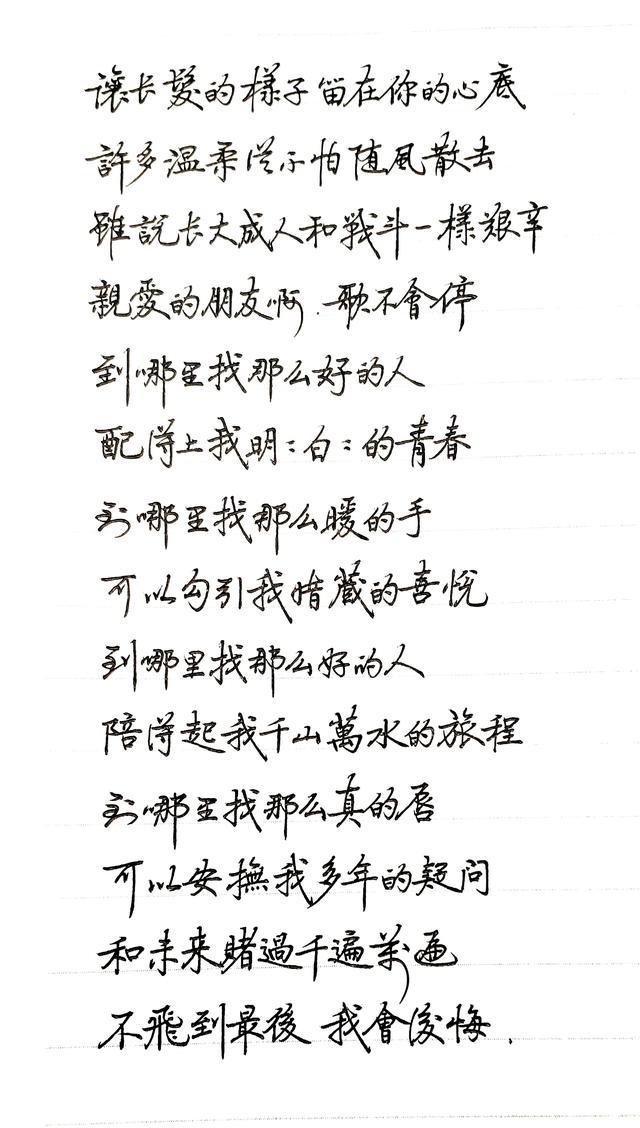 讓长髮的樣子留在你的心底
許多溫柔從不怕随風散去
雖說长大成人和戰斗一樣艱辛
親愛的朋友啊.歌不會停
到哪里找那么好的人
配得上我明:白:的青春
到哪里找那么暖的手
可以勾引我暗藏的喜悅
到哪里找那么好的人
陪得起我千山萬水的旅程
到哪里找那么真的唇
可以安撫我多年的疑问
和未来賭過千遍萬遍
不飛到最後 我會後悔.